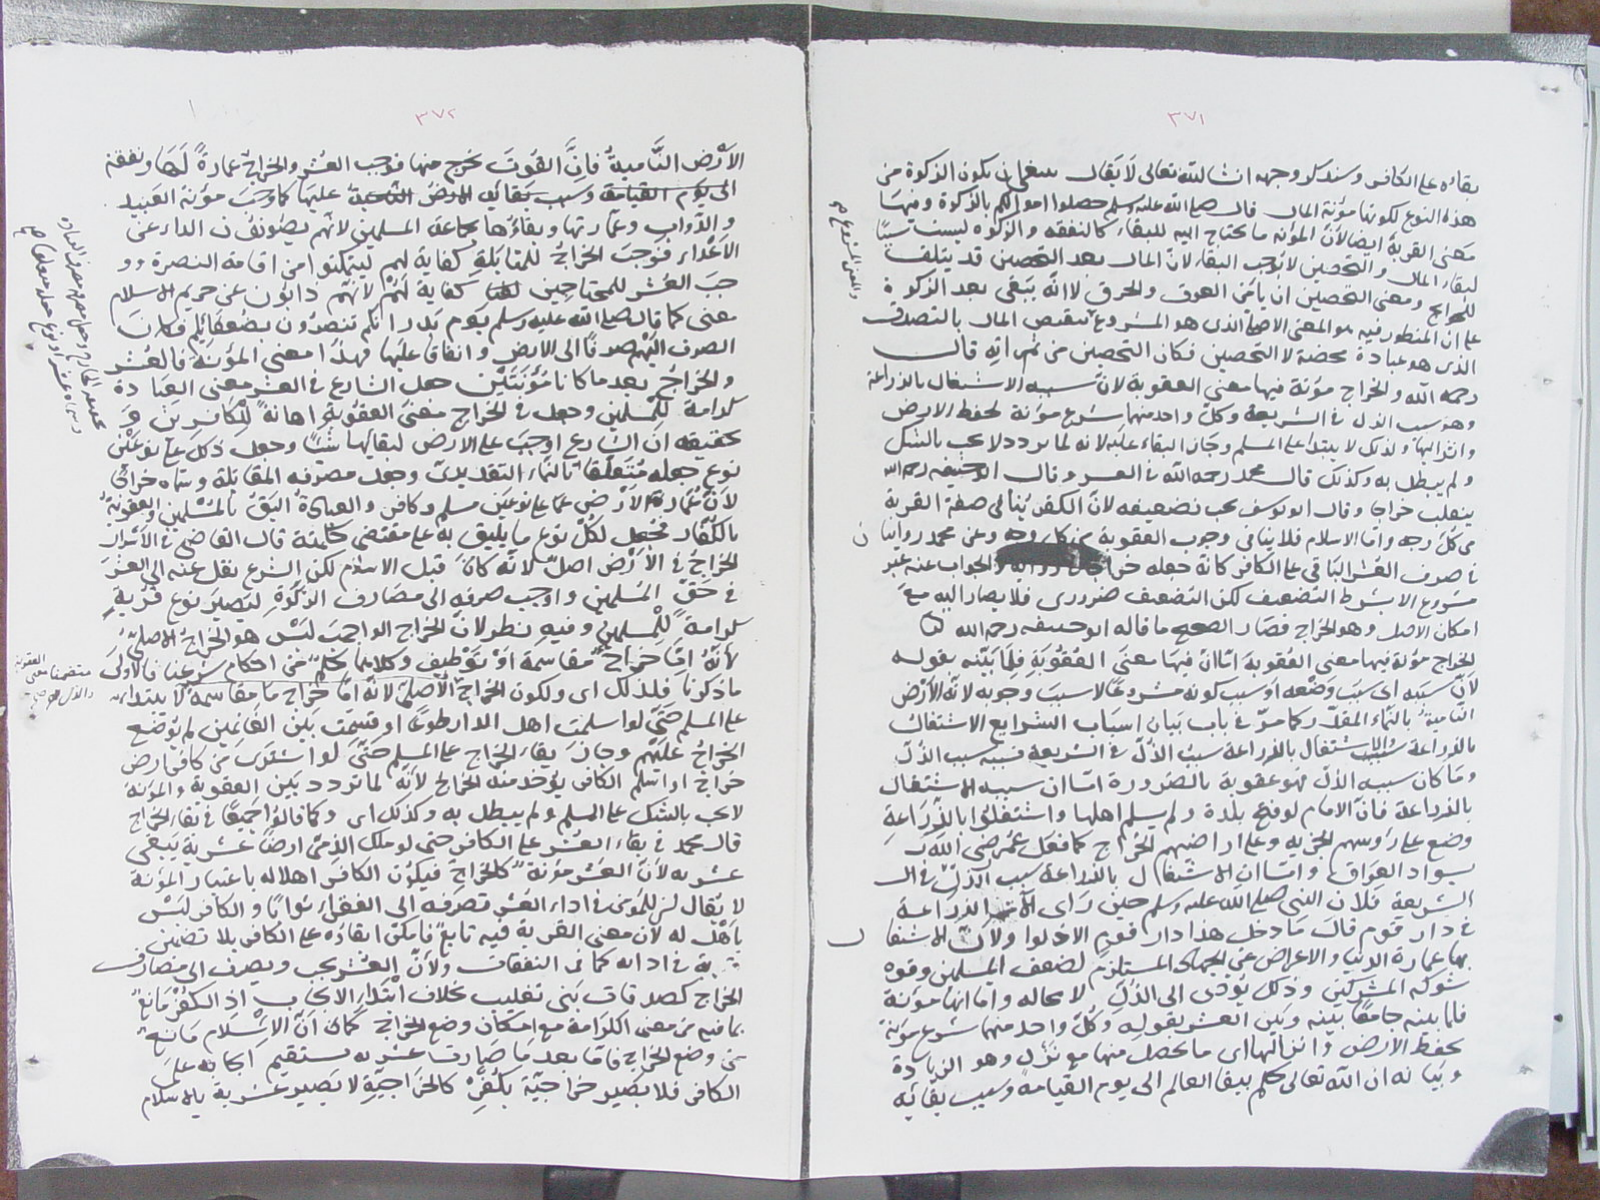 ٣٧١
بقاؤه على الكافر وسنذكر وجهه ان شا الله تعالى لا يقال ينبغى ان يكون الزكوة من
هذه النوع لكونها مؤنة المال قال صلى الله عليه وسلم حصنوا اموالكم بالزكوة وفيها
معنى القربة ايضا لان المؤنه ما يحتاج اليه للبقاء كالنفقه والزكوه ليست سببا
لبقاء المال والتحصين لا يوجب البقاء لان المال بعد التحصين قد يتلف
ومعنى التحصين ان يأمن الغرق والحرق لا انه يبقى بعد الزكوة
على ان المنظور فيه هو المعنى الاصلى الذى هو المشروع تنقيص المال بالتصدق
الذى هو عبادة محضة لا التحصين فكان التحصين من ثمراته قال
رحمه الله والخراج مؤنة فيها معنى العقوبة لان سببه الاشتغال بالزراعة
وهو سبب الذل فى الشريعة وكل واحد منهما شرع مؤنة لحفظ الارض
وانزالها ولذلك لا يبتدا على المسلم وجاز البقاء عليه لانه لما تردد لا يجب بالشك
ولم يبطل به وكذلك قال محمد رحمه الله فى العشر وقال ابو حنيفه رحمه الله
ينقلب خراجيا وقال ابو يوسف يجب تضعيفه لان الكفر ينافى صفة القربة
من كل وجه واما الاسلام فلا ينافى وجوب العقوبة من كل وجه وعن محمد روايتان
فى صرف العشر الباقى على الكافر كانه جعله والجواب عنه غير
مشروع الا بشرط التضعيف لكن التضعيف ضرورى فلا يصار اليه مع
امكان الاصل وهو الخراج فصار الصحيح ما قاله ابو حنيفه رحمه الله
الخراج مؤنة فيها معنى العقوبة اما ان فيها معنى العقوبة فلما بينه بقوله
لان سببه اى سبب وضعه او سبب كونه مشروعا لا سبب وجوبه لانه الارض
النامية بالنماء المقدر كما مر فى باب بيان اسباب الشرايع الاشتغال
بالزراعة والاشتغال بالزراعة سبب الذل فى الشريعة فسببه سبب الذل
وما كان سببه الذل فهو عقوبة بالضرورة اما ان سببه الاشتغال
بالزراعة فان الامام لو فتح بلدة ولم يسلم اهلها واشتغلوا بالزراعة
وضع على رؤسهم الجزيه وعلى اراضيهم الخراج كما فعل عمر رضى الله
بسواد العراق واما ان الاشتغال بالزراعة سبب الذل فى
الشريعة فلان النبى صلى الله عليه وسلم حين راى الزراعة
فى دار قوم قال ما دخل هذا دار قوم الا ذلوا ولان الاشتغال
بها عمارة الدنيا والاعراض عن الجهاد المستلزم لضعف المسلمين وقوه
شوكه المشركين وذلك يؤدى الى الذل لا محاله واما انها مؤنة
فلما بينه جامعا بينه وبين العشر بقوله وكل واحد منهما شرع مؤنة
لحفظ الارض وانزالها اى ما يحصل منها مع نزل وهو الزيادة
وبيانه ان الله تعالى حكم ببقا العالم الى يوم القيامة وسبب بقائه
والمعنى المشروع صح
٣٧٢
الارض النامية فان القوت يخرج منها فوجب العشر والخراج عمارة لها ونفقة
الى يوم القيامة وسبب بقائه الارض النامية عليها كما وجب مؤنة العبيد
والدواب وعمارتها وبقاؤها بجماعة المسلمين لانهم يصونون الدار عن
الاعداء فوجب الخراج للمقابلة كفاية لهم ليتمكنوا من اقامة النصرة وو
جب العشر للمحتاجين كفاية لهم لانهم ذابون عن حريم الاسلام
معنى كما قال صلى الله عليه وسلم يوم بدر انكم تنصرون بضعفائكم فكان
الصرف اليهم صرفا الى الارض وانفاقا عليها فهذا معنى المؤنة فالعشر
والخراج بعد ما كانا مؤنتين جعل الشارع فى العشر معنى العبادة
كرامة للمسلمين وجعل فى الخراج معنى العقوبة اهانة للكافرين و
تحقيقه ان الشارع اوجب على الارض لبقائها شيئا وجعل ذلك على نوعين
نوع جعله متعلقا بالنماء التقديرى وجعل مصرفه المقابلة وسماه خراجا
لان عمارة الارض على نوعين مسلم وكافر والعبادة اليق بالمسلمين والعقوبة
بالكفار فجعل لكل نوع ما يليق له على مقتضى حكمته قال القاضى فى الاسرار
الخراج فى الارض اصل لانه كان قبل الاسلام لكن الشرع نقل عنه الى العشر
فى حق المسلمين واوجب صرفه الى مصارف الزكوة ليصير نوع قربة
كرامة للمسلمين وفيه نظر لان الخراج الواجب ليس هو الخراج الاصلى
لانه اما خراج مقاسمة او توظيف وكلاهما حكم من احكام شرعنا فالاولى
ما ذكرنا فلذلك اى ولكون الخراج الاصلى لانه اما خراج مقاسمة لا يبتدا به
على المسلم حتى لو اسلمت اهل الدار طوعا او قسمت بين الغانمين لم يوضع
الخراج عليهم وجاز بقاء الخراج على المسلم حتى لو اشترى من كافر ارض
خراج او اسلم الكافر يؤخذ منه الخراج لانه لما تردد بين العقوبة والمؤنة
لا يجب بالشك على المسلم ولم يبطل به وكذلك اى وكما قالوا جميعا فى بقاء الخراج
قال محمد فى بقاء العشر على الكافر حتى لو ملك الذمى ارضا عشرية يبقى
عشريه لان العشر مؤنة كالخراج فيكون الكافر اهلا له باعتبار المؤنة
لا يقال ان للمؤمن فى اداء العشر تصرفه الى الفقراء ثوابا والكافر ليس
باهل له لان معنى القربة فيه تابع فامكن ابقاؤه على الكافر بلا تضمين
قربة فى ادائه كما فى النفقات ولان العشر يجب ويصرف الى مصارف
الخراج كصدقات بنى تغلب بخلاف ابتداء الايجاب اذ الكفر مانع
بما فيه من معنى الكرامة مع امكان وضع الخراج كما ان الاسلام مانع
من وضع الخراج فاما بعد ما صارت عشريه يستقيم ايجابه على
الكافر فلا يصير خراجية بكفره كالخراجية لا يصير عشرية بالاسلام